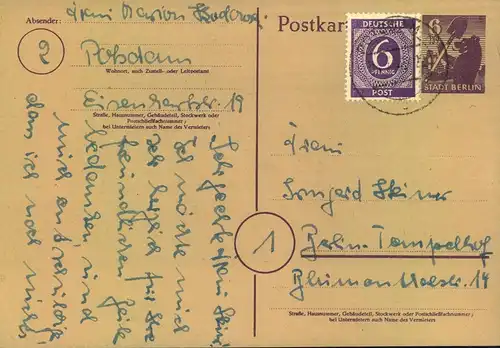 Absender: Frau Marion
2
Potsdam
Wohnort, auch Zustell- oder Leitpostamt
Eisenhartstr. 19
Straße, Hausnummer, Gebäudeteil, Stockwerk oder
Postschließfachnummer;
bei Untermietern auch Name des Vermieters
Sehr geehrte Frau
ich möchte mich
für Ihre
freundlichen
bedanken, und
mich
daß ich noch nichts
Postkar
DEUTSCHE
6
PFENNIG
POST
6
STADT BERLIN
Frau
Irmgard
1
Berlin-Tempelhof
14
Straße, Hausnummer, Gebäudeteil, Stockwerk oder Postschließfachnummer;
bei Untermietern auch Name des Vermieters